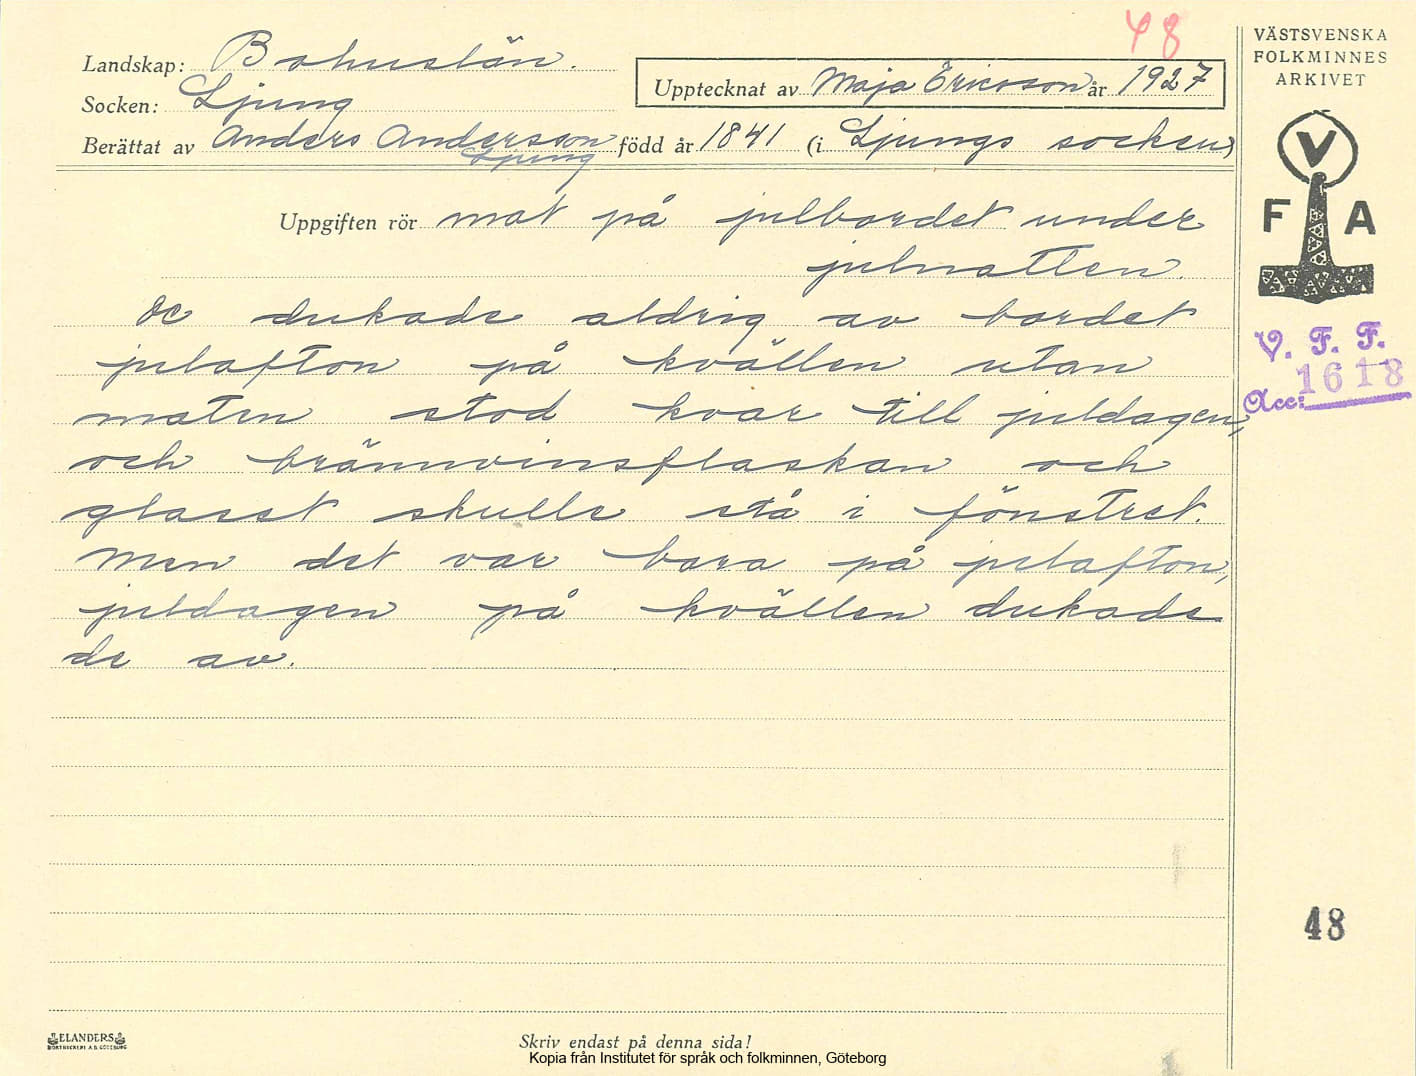 48
Landskap: Bohuslän.
Socken: Ljung
Upptecknat av Maja Ericsson år 1927
Berättat av Anders Andersson född år 1841 (i Ljungs socken)
Ljung
Uppgiften rör mat på julbordet under
julnatten.
De dukade aldrig av bordet
julafton på kvällen utan
maten stod kvar till juldagen,
och brännvinsflaskan och
glaset skulle stå i fönstret.
Men det var bara på julafton,
juldagen på kvällen dukade
de av.
VÄSTSVENSKA
FOLKMINNES
ARKIVET
V
F A
V. F. F.
Acc: 1618
48
ELANDERS
BOKTRYCKERI A.B. GÖTEBORG
Skriv endast på denna sida!
Kopia från Institutet för språk och folkminnen, Göteborg